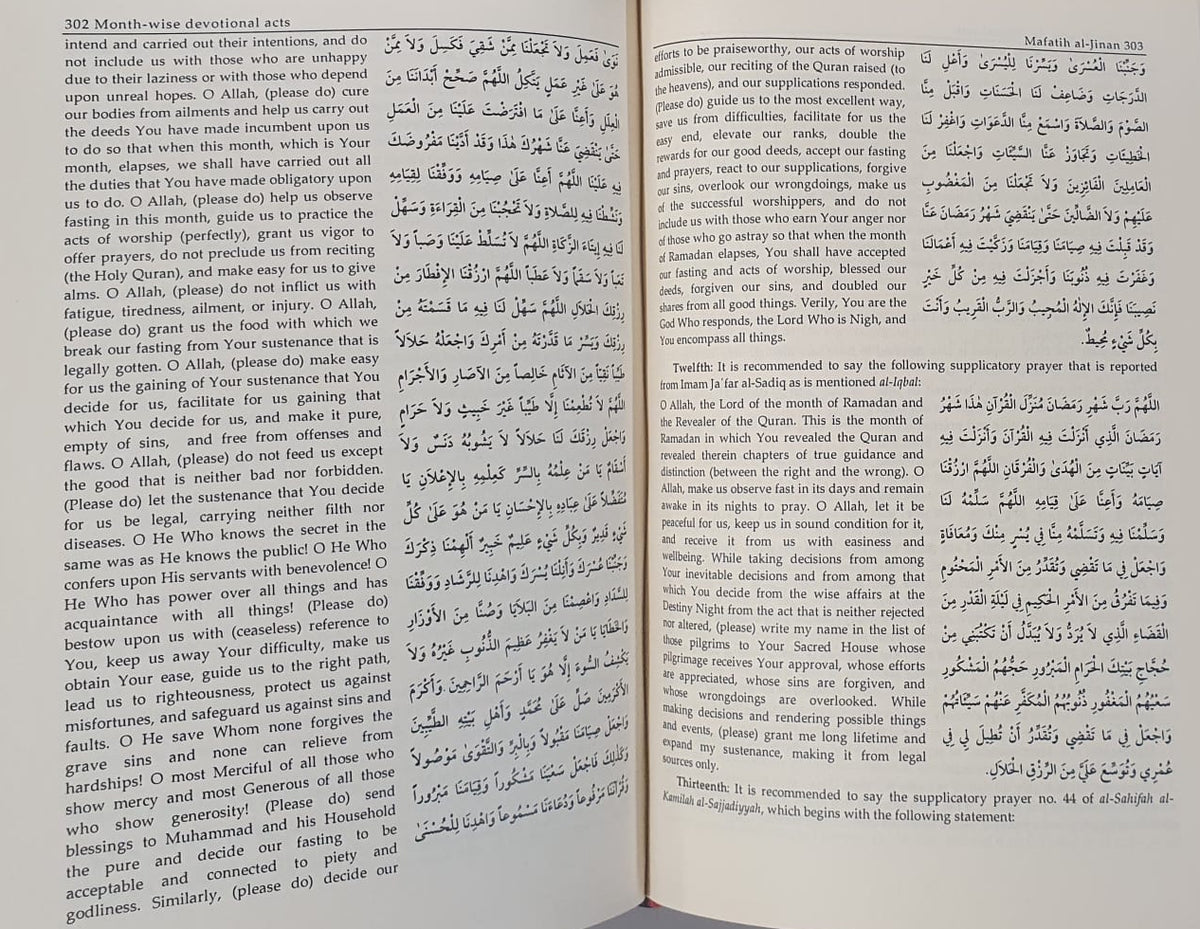 302 Month-wise devotional acts
intend and carried out their intentions, and do
not include us with those who are unhappy
due to their laziness or with those who depend
upon unreal hopes. O Allah, (please do) cure
our bodies from ailments and help us carry out
the deeds You have made incumbent upon us
to do so that when this month, which is Your
month, elapses, we shall have carried out all
the duties that You have made obligatory upon
us to do. O Allah, (please do) help us observe
fasting in this month, guide us to practice the
acts of worship (perfectly), grant us vigor to
offer prayers, do not preclude us from reciting
(the Holy Quran), and make easy for us to give
alms. O Allah, (please) do not inflict us with
fatigue, tiredness, ailment, or injury. O Allah,
(please do) grant us the food with which we
break our fasting from Your sustenance that is
legally gotten. O Allah, (please do) make easy
for us the gaining of Your sustenance that You
decide for us, facilitate for us gaining that
which You decide for us, and make it pure,
empty of sins, and free from offenses and
flaws. O Allah, (please) do not feed us except
the good that is neither bad nor forbidden.
(Please do) let the sustenance that You decide
for us be legal, carrying neither filth nor
diseases. O He Who knows the secret in the
same was as He knows the public! O He Who
confers upon His servants with benevolence! O
He Who has power over all things and has
acquaintance with all things! (Please do)
bestow upon us with (ceaseless) reference to
You, keep us away Your difficulty, make us
obtain Your ease, guide us to the right path,
lead us to righteousness, protect us against
misfortunes, and safeguard us against sins and
faults. O He save Whom none forgives the
grave sins and none can relieve from
hardships! O most Merciful of all those who
show mercy and most Generous of all those
who show generosity! (Please do) send
blessings to Muhammad and his Household
the pure and decide our fasting to be
acceptable and connected to piety and
godliness. Similarly, (please do) decide our
نَوَىٰ فَعَمِلَ وَلاَ تَجْعَلْنَا مِمَّنْ شَقِيَ فَكَسِلَ وَلاَ مِمَّنْ
هُوَ عَلَىٰ غَيْرِ عَمَلٍ يَتَّكِلُ اللَّهُمَّ صَحِّحْ أَبْدَانَنَا مِنَ
الْعِلَلِ وَأَعِنَّا عَلَىٰ مَا افْتَرَضْتَ عَلَيْنَا مِنَ الْعَمَلِ
حَتَّىٰ يَنْقَضِيَ عَنَّا شَهْرُكَ هٰذَا وَقَدْ أَدَّيْنَا مَفْرُوضَكَ
فِيهِ عَلَيْنَا اللَّهُمَّ أَعِنَّا عَلَىٰ صِيَامِهِ وَوَفِّقْنَا لِقِيَامِهِ
وَنَشِّطْنَا فِيهِ لِلصَّلاَةِ وَلاَ تَحْجُبْنَا مِنَ الْقِرَاءَةِ وَسَهِّلْ
لَنَا فِيهِ إِيتَاءَ الزَّكَاةِ اللَّهُمَّ لاَ تُسَلِّطْ عَلَيْنَا وَصَباً وَلاَ
تَعَباً وَلاَ سَقَماً وَلاَ عَطَباً اللَّهُمَّ ارْزُقْنَا الإِفْطَارَ مِنْ
رِزْقِكَ الْحَلاَلِ اللَّهُمَّ سَهِّلْ لَنَا فِيهِ مَا قَسَمْتَهُ مِنْ
رِزْقِكَ وَيَسِّرْ مَا قَدَّرْتَهُ مِنْ أَمْرِكَ وَاجْعَلْهُ حَلاَلاً
طَيِّباً نَقِيّاً مِنَ الآثَامِ خَالِصاً مِنَ الآصَارِ وَالأَجْرَامِ
اللَّهُمَّ لاَ تُطْعِمْنَا إِلَّا طَيِّباً غَيْرَ خَبِيثٍ وَلاَ حَرَامٍ
وَاجْعَلْ رِزْقَكَ لَنَا حَلاَلاً لاَ يَشُوبُهُ دَنَسٌ وَلاَ
أَسْقَامٌ يَا مَنْ عِلْمُهُ بِالسِّرِّ كَعِلْمِهِ بِالإِعْلاَنِ يَا
مُتَفَضِّلاً عَلَىٰ عِبَادِهِ بِالإِحْسَانِ يَا مَنْ هُوَ عَلَىٰ كُلِّ
شَيْءٍ قَدِيرٌ وَبِكُلِّ شَيْءٍ عَلِيمٌ خَبِيرٌ أَلْهِمْنَا ذِكْرَكَ
وَجَنِّبْنَا عُسْرَكَ وَأَنِلْنَا يُسْرَكَ وَاهْدِنَا لِلرَّشَادِ وَوَفِّقْنَا
لِلسَّدَادِ وَاعْصِمْنَا مِنَ الْبَلاَيَا وَصُنَّا مِنَ الأَوْزَارِ
وَالْخَطَايَا يَا مَنْ لاَ يَغْفِرُ عَظِيمَ الذُّنُوبِ غَيْرُهُ وَلاَ
يَكْشِفُ السُّوءَ إِلَّا هُوَ يَا أَرْحَمَ الرَّاحِمِينَ وَأَكْرَمَ
الأَكْرَمِينَ صَلِّ عَلَىٰ مُحَمَّدٍ وَأَهْلِ بَيْتِهِ الطَّيِّبِينَ
وَاجْعَلْ صِيَامَنَا مَقْبُولاً وَبِالْبِرِّ وَالتَّقْوَىٰ مَوْصُولاً
وَكَذٰلِكَ فَاجْعَلْ سَعْيَنَا مَشْكُوراً وَقِيَامَنَا مَبْرُوراً
وَقُرْآنَنَا مَرْفُوعاً وَدُعَاءَنَا مَسْمُوعاً وَاهْدِنَا لِلْحُسْنَىٰ
Mafatih al-Jinan 303
efforts to be praiseworthy, our acts of worship
admissible, our reciting of the Quran raised (to
the heavens), and our supplications responded.
(Please do) guide us to the most excellent way,
save us from difficulties, facilitate for us the
easy end, elevate our ranks, double the
rewards for our good deeds, accept our fasting
and prayers, react to our supplications, forgive
our sins, overlook our wrongdoings, make us
of the successful worshippers, and do not
include us with those who earn Your anger nor
of those who go astray so that when the month
of Ramadan elapses, You shall have accepted
our fasting and acts of worship, blessed our
deeds, forgiven our sins, and doubled our
shares from all good things. Verily, You are the
God Who responds, the Lord Who is Nigh, and
You encompass all things.
وَجَنِّبْنَا الْعُسْرَىٰ وَيَسِّرْنَا لِلْيُسْرَىٰ وَأَعْلِ لَنَا
الدَّرَجَاتِ وَضَاعِفْ لَنَا الْحَسَنَاتِ وَاقْبَلْ مِنَّا
الصَّوْمَ وَالصَّلاَةَ وَاسْمَعْ مِنَّا الدَّعَوَاتِ وَاغْفِرْ لَنَا
الْخَطِيئَاتِ وَتَجَاوَزْ عَنَّا السَّيِّئَاتِ وَاجْعَلْنَا مِنَ
الْعَامِلِينَ الْفَائِزِينَ وَلاَ تَجْعَلْنَا مِنَ الْمَغْضُوبِ
عَلَيْهِمْ وَلاَ الضَّالِّينَ حَتَّىٰ يَنْقَضِيَ شَهْرُ رَمَضَانَ عَنَّا
وَقَدْ قَبِلْتَ فِيهِ صِيَامَنَا وَقِيَامَنَا وَزَكَّيْتَ فِيهِ أَعْمَالَنَا
وَغَفَرْتَ فِيهِ ذُنُوبَنَا وَأَجْزَلْتَ فِيهِ مِنْ كُلِّ خَيْرٍ
نَصِيبَنَا فَإِنَّكَ الإِلٰهُ الْمُجِيبُ وَالرَّبُّ الْقَرِيبُ وَأَنْتَ
بِكُلِّ شَيْءٍ مُحِيطٌ.
Twelfth: It is recommended to say the following supplicatory prayer that is reported
from Imam Ja`far al-Sadiq as is mentioned al-Iqbal:
O Allah, the Lord of the month of Ramadan and
the Revealer of the Quran. This is the month of
Ramadan in which You revealed the Quran and
revealed therein chapters of true guidance and
distinction (between the right and the wrong). O
Allah, make us observe fast in its days and remain
awake in its nights to pray. O Allah, let it be
peaceful for us, keep us in sound condition for it,
and receive it from us with easiness and
wellbeing. While taking decisions from among
Your inevitable decisions and from among that
which You decide from the wise affairs at the
Destiny Night from the act that is neither rejected
nor altered, (please) write my name in the list of
those pilgrims to Your Sacred House whose
pilgrimage receives Your approval, whose efforts
are appreciated, whose sins are forgiven, and
whose wrongdoings are overlooked. While
making decisions and rendering possible things
and events, (please) grant me long lifetime and
expand my sustenance, making it from legal
sources only.
اللَّهُمَّ رَبَّ شَهْرِ رَمَضَانَ مُنَزِّلَ الْقُرْآنِ هٰذَا شَهْرُ
رَمَضَانَ الَّذِي أَنْزَلْتَ فِيهِ الْقُرْآنَ وَأَنْزَلْتَ فِيهِ
آيَاتٍ بَيِّنَاتٍ مِنَ الْهُدَىٰ وَالْفُرْقَانِ اللَّهُمَّ ارْزُقْنَا
صِيَامَهُ وَأَعِنَّا عَلَىٰ قِيَامِهِ اللَّهُمَّ سَلِّمْهُ لَنَا
وَسَلِّمْنَا فِيهِ وَتَسَلَّمْهُ مِنَّا فِي يُسْرٍ مِنْكَ وَمُعَافَاةٍ
وَاجْعَلْ فِي مَا تَقْضِي وَتُقَدِّرُ مِنَ الأَمْرِ الْمَحْتُومِ
وَفِيمَا تَفْرُقُ مِنَ الأَمْرِ الْحَكِيمِ فِي لَيْلَةِ الْقَدْرِ مِنَ
الْقَضَاءِ الَّذِي لاَ يُرَدُّ وَلاَ يُبَدَّلُ أَنْ تَكْتُبَنِي مِنْ
حُجَّاجِ بَيْتِكَ الْحَرَامِ الْمَبْرُورِ حَجُّهُمُ الْمَشْكُورِ
سَعْيُهُمُ الْمَغْفُورِ ذُنُوبُهُمُ الْمُكَفَّرِ عَنْهُمْ سَيِّئَاتُهُمْ
وَاجْعَلْ فِي مَا تَقْضِي وَتُقَدِّرُ أَنْ تُطِيلَ لِي فِي
عُمْرِي وَتُوَسِّعَ عَلَيَّ مِنَ الرِّزْقِ الْحَلاَلِ.
Thirteenth: It is recommended to say the supplicatory prayer no. 44 of al-Sahifah al-
Kamilah al-Sajjadiyyah, which begins with the following statement: